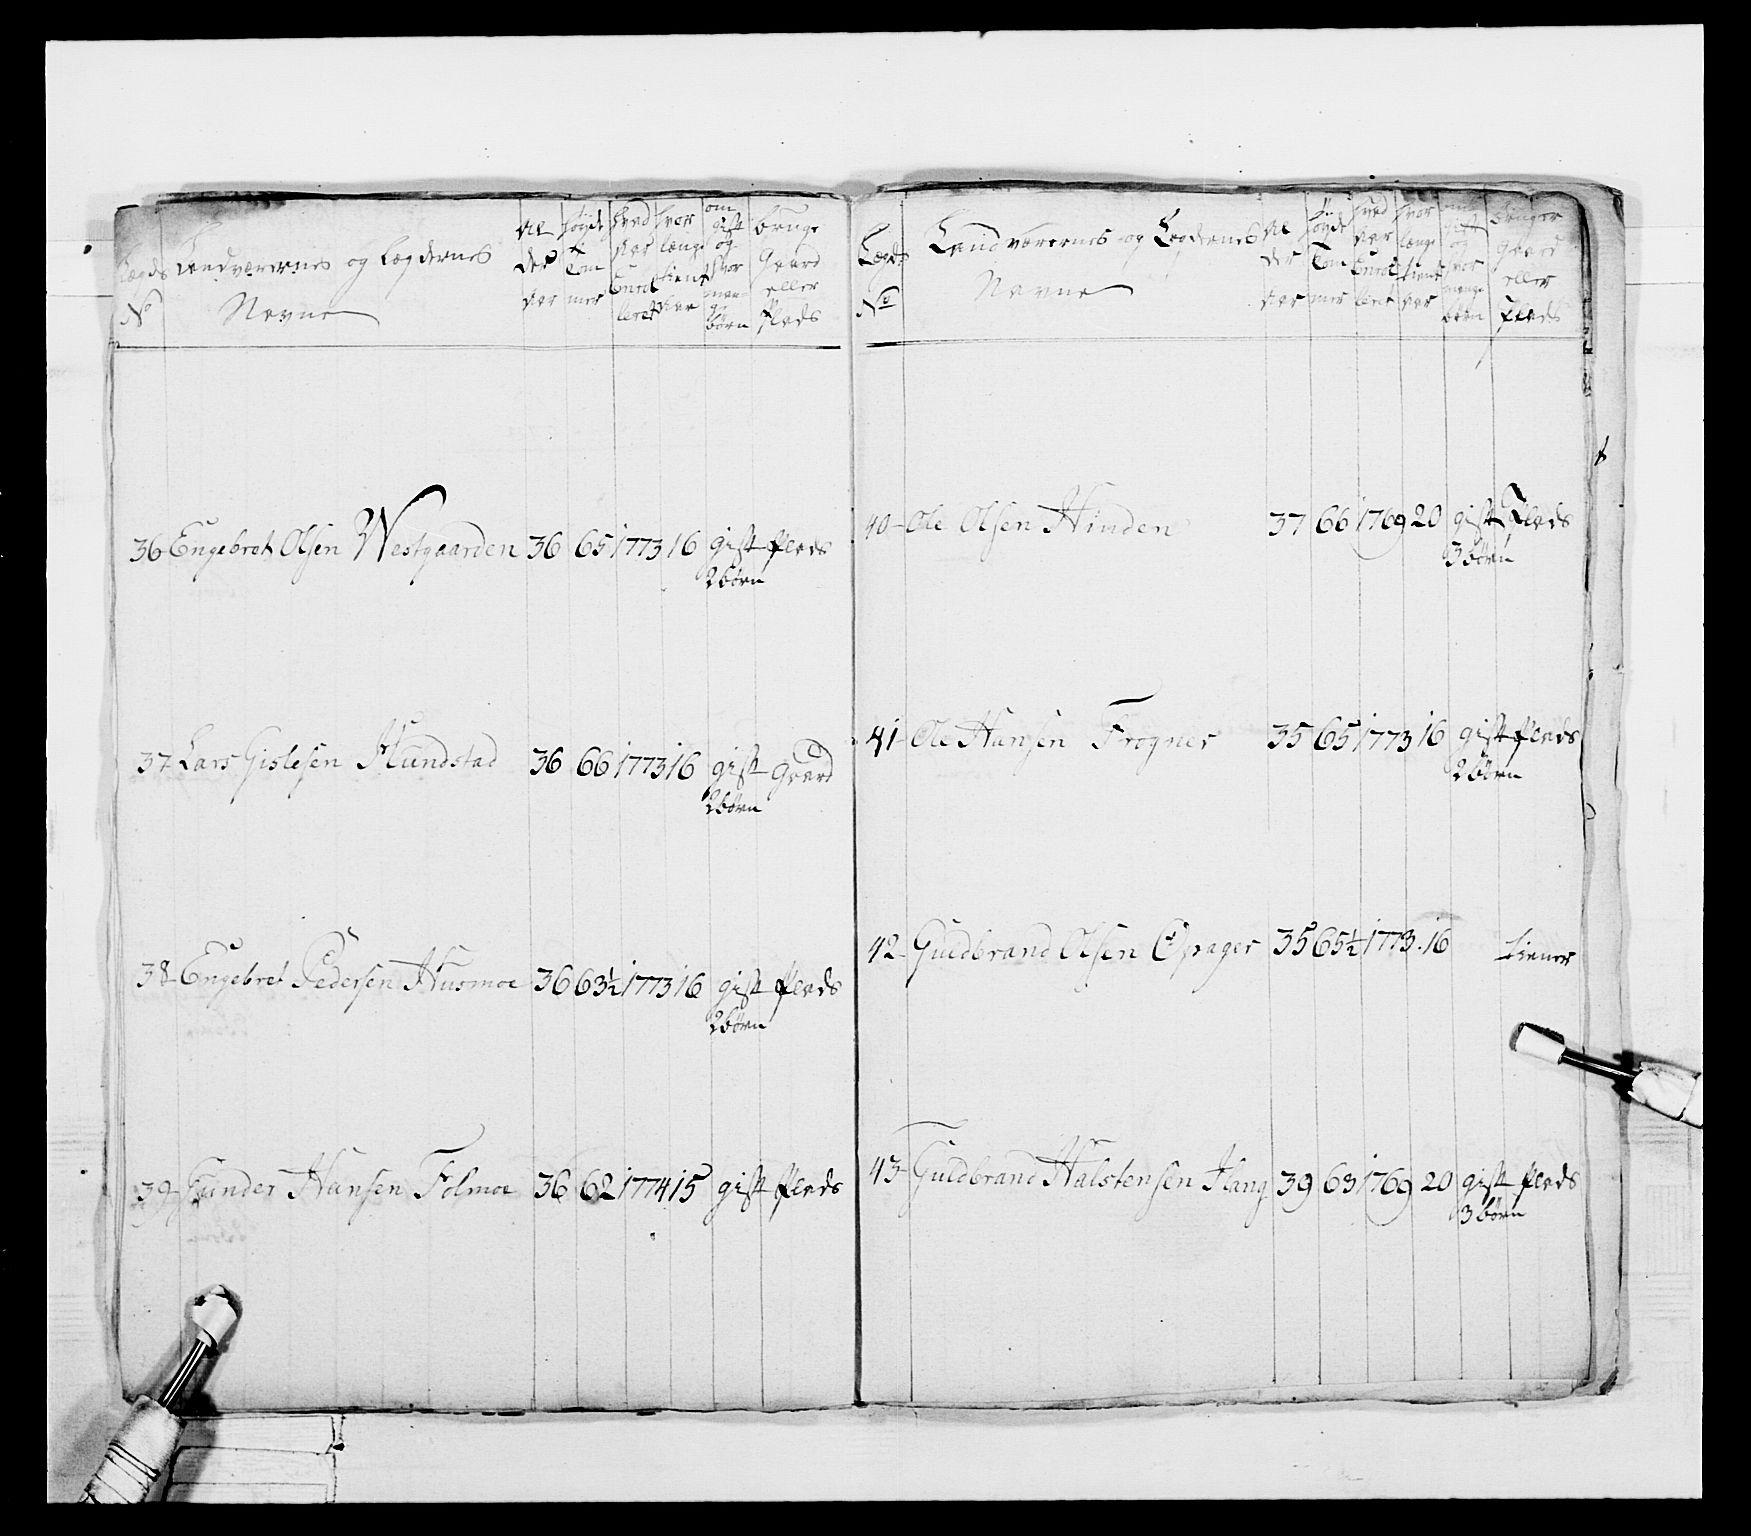 Lægds Landværernes og Lægdernes
No Navne
Al
der
Aar
høyde
Tom
mer
hvad
Aar
Enrol
leret
hvor
længe
tient
Aar
om
gift
og
hvor
man-
ge
børn
bruge
Gaard
eller
Plads
36 Engebret Olsen Westgaarden 36 65 1773 16 gift Plads
2 børn
37 Lars Gislesen Hundstad 36 66 1773 16 gift Gaard
2 børn
38 Engebret Pedersen Husmoe 36 63½ 1773 16 gift Plads
2 børn
39 Gunder Hansen Folmoe 36 62 1774 15 gift Plads
Lægds Landværernes og Lægdernes
No Navne
Al
der
Aar
høyde
Tom
mer
hvad
Aar
Enrol
leret
hvor
længe
tient
Aar
om
gift
og
hvor
mange
børn
bruger
Gaard
eller
Plads
40 Ole Olsen Hinden 37 66 1769 20 gift Plads
3 børn
41 Ole Hansen Frogner 35 65 1773 16 gift Plads
2 børn
42 Guldbrand Olsen Opager 35 65½ 1773 16 tiener
43 Guldbrand Halstensen Hang 39 63 1769 20 gift Plads
3 børn